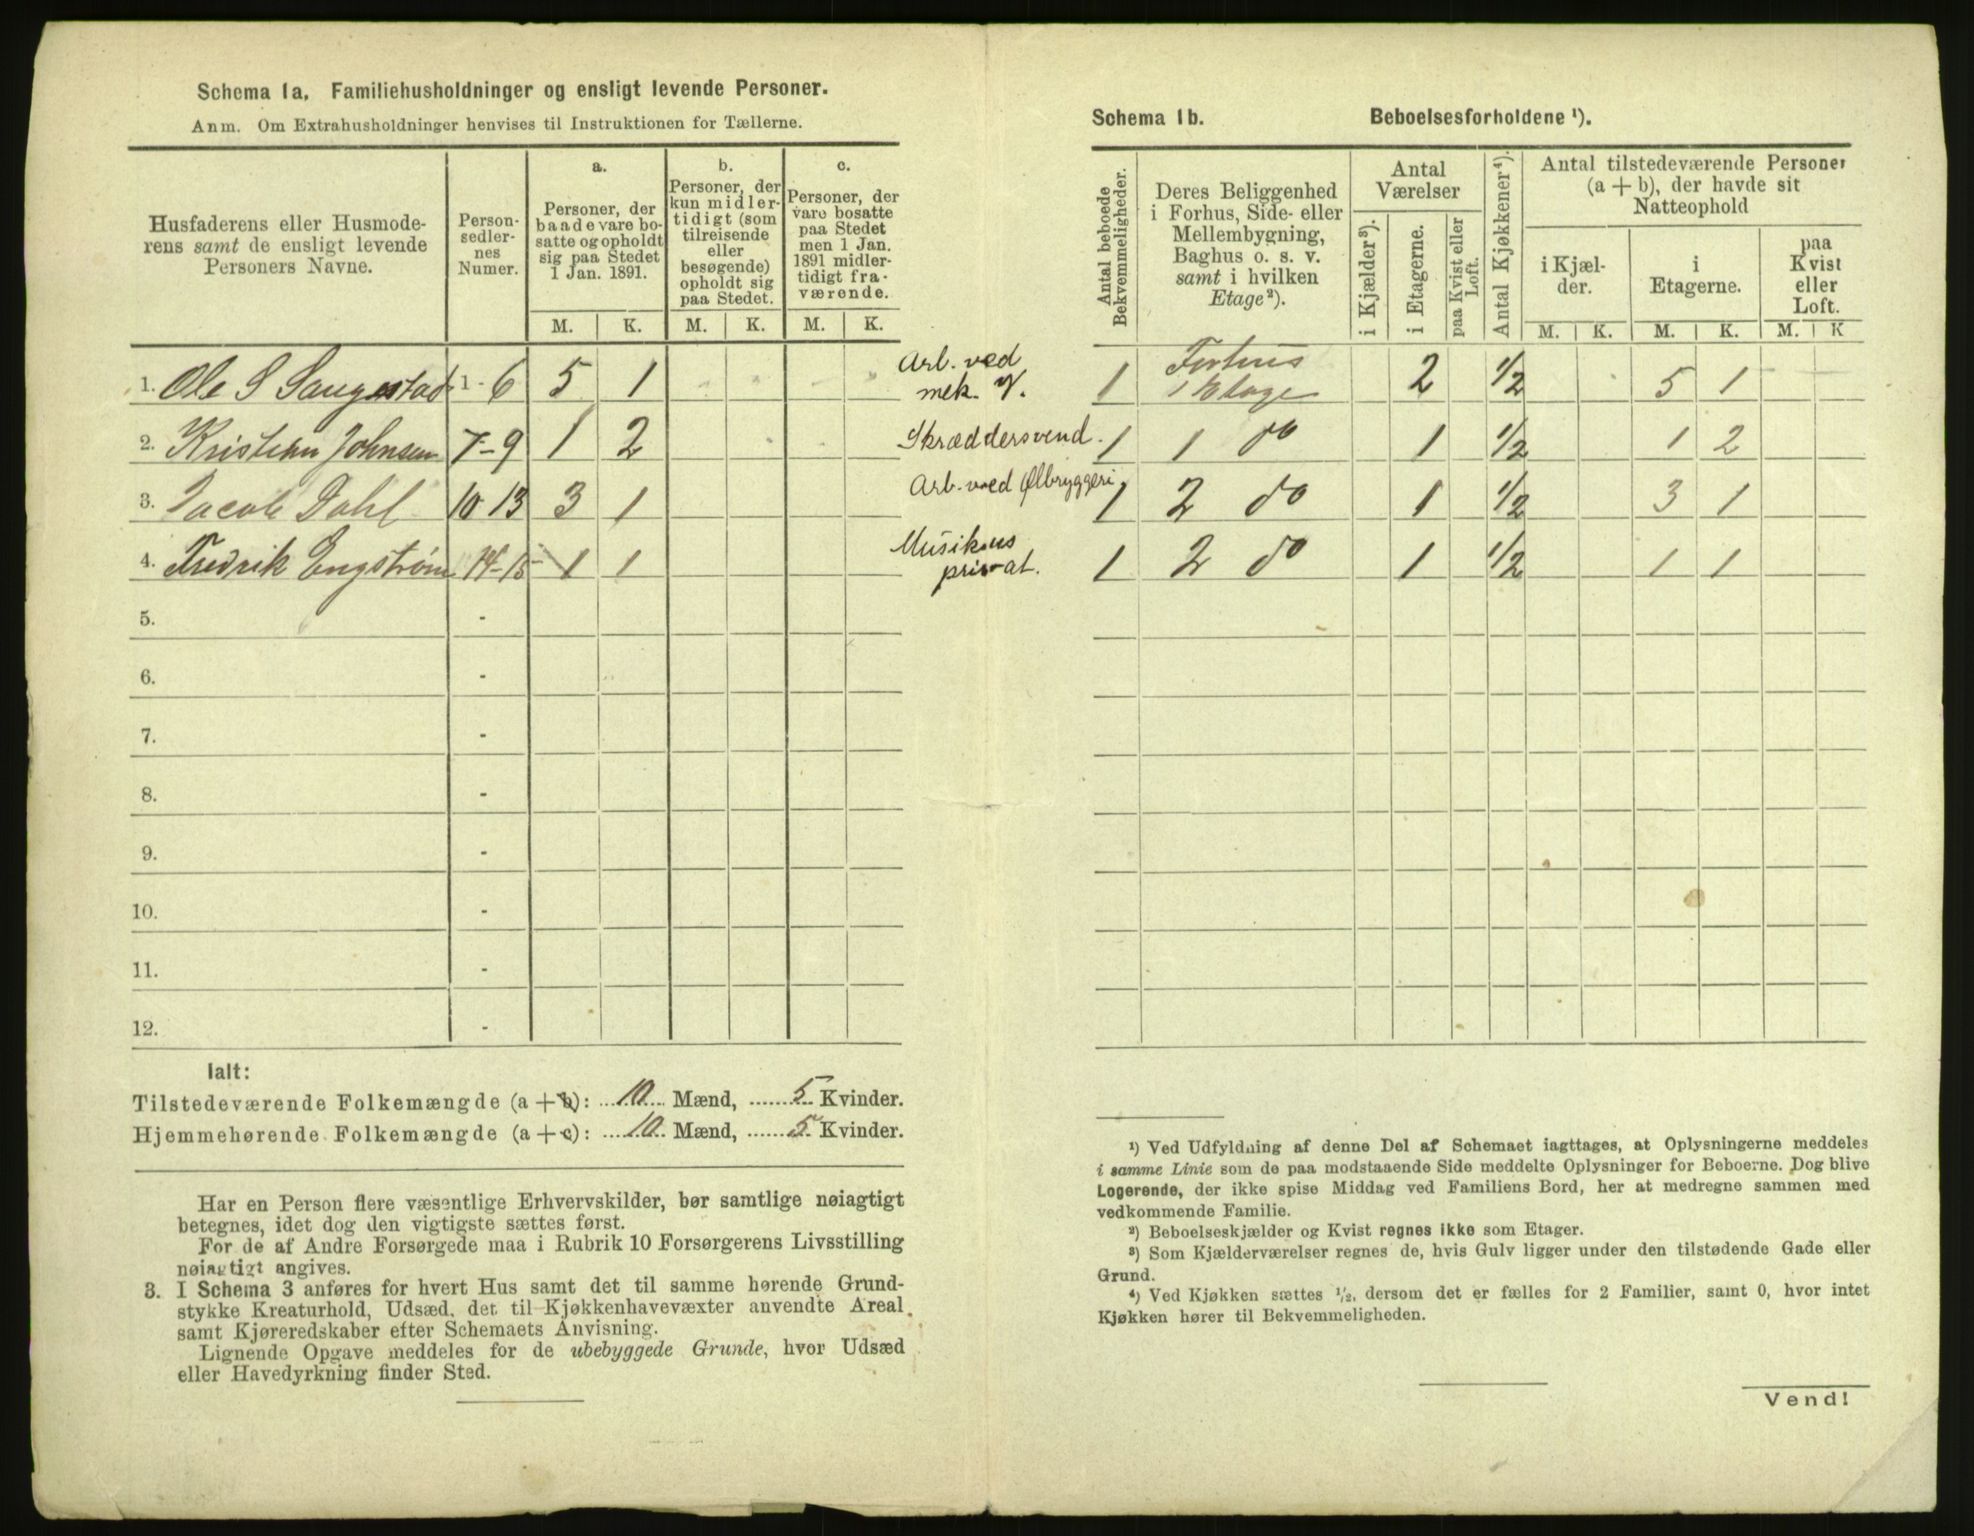 Schema 1a. Familiehusholdninger og ensligt levende Personer.
Anm. Om Extrahusholdninger henvises til Instruktionen for Tællerne.
Husfaderens eller Husmode-
rens samt de ensligt levende
Personers Navne.
Person-
sedler-
nes
Numer.
a.
Personer, der
baade vare bo-
satte og opholdt
sig paa Stedet
1 Jan. 1891.
b.
Personer, der
kun midler-
tidigt (som
tilreisende
eller
besøgende)
opholdt sig
paa Stedet.
c.
Personer, der
vare bosatte
paa Stedet
men 1 Jan.
1891 midler-
tidigt fra-
værende.
M. K. M. K. M. K.
1. Ole S 1 - 6 5 1 Arb. ved
mek. V.
2. Kristian Johnsen 7 - 9 1 2 Skræddersvend.
3. Jacob Dahl 10 13 3 1 Arb. ved Ølbryggeri
4. Fredrik Engstrøm 14 - 15 1 1 Musikus
privat.
5. -
6. -
7. -
8. -
9. -
10. -
11. -
12. -
Ialt:
Tilstedeværende Folkemængde (a + b): 10 Mænd, 5 Kvinder.
Hjemmehørende Folkemængde (a + c): 10 Mænd, 5 Kvinder.
Har en Person flere væsentlige Erhvervskilder, bør samtlige nøiagtigt
betegnes, idet dog den vigtigste sættes først.
For de af Andre Forsørgede maa i Rubrik 10 Forsørgerens Livsstilling
nøiagtigt angives.
3. I Schema 3 anføres for hvert Hus samt det til samme hørende Grund-
stykke Kreaturhold, Udsæd, det til Kjøkkenhavevæxter anvendte Areal
samt Kjøreredskaber efter Schemaets Anvisning.
Lignende Opgave meddeles for de ubebyggede Grunde, hvor Udsæd
eller Havedyrkning finder Sted.
Schema 1b. Beboelsesforholdene ¹).
Antal beboede
Bekvemmeligheder.
Deres Beliggenhed
i Forhus, Side- eller
Mellembygning,
Baghus o. s. v.
samt i hvilken
Etage²).
Antal
Værelser
i Kjælder³).
i Etagerne.
paa Kvist eller
Loft.
Antal Kjøkkener⁴).
Antal tilstedeværende Personer
(a + b), der havde sit
Natteophold
i Kjæl-
der.
i
Etagerne.
paa
Kvist
eller
Loft.
M. K. M. K. M. K
1 Forhus
1 Etage 2 ½ 5 1
1 1 do 1 ½ 1 2
1 2 do 1 ½ 3 1
1 2 do 1 ½ 1 1
¹) Ved Udfyldning af denne Del af Schemaet iagttages, at Oplysningerne meddeles
i samme Linie som de paa modstaaende Side meddelte Oplysninger for Beboerne. Dog blive
Logerende, der ikke spise Middag ved Familiens Bord, her at medregne sammen med
vedkommende Familie.
²) Beboelseskjælder og Kvist regnes ikke som Etager.
³) Som Kjælderværelser regnes de, hvis Gulv ligger under den tilstødende Gade eller
Grund.
⁴) Ved Kjøkken sættes ½, dersom det er fælles for 2 Familier, samt 0, hvor intet
Kjøkken hører til Bekvemmeligheden.
Vend!